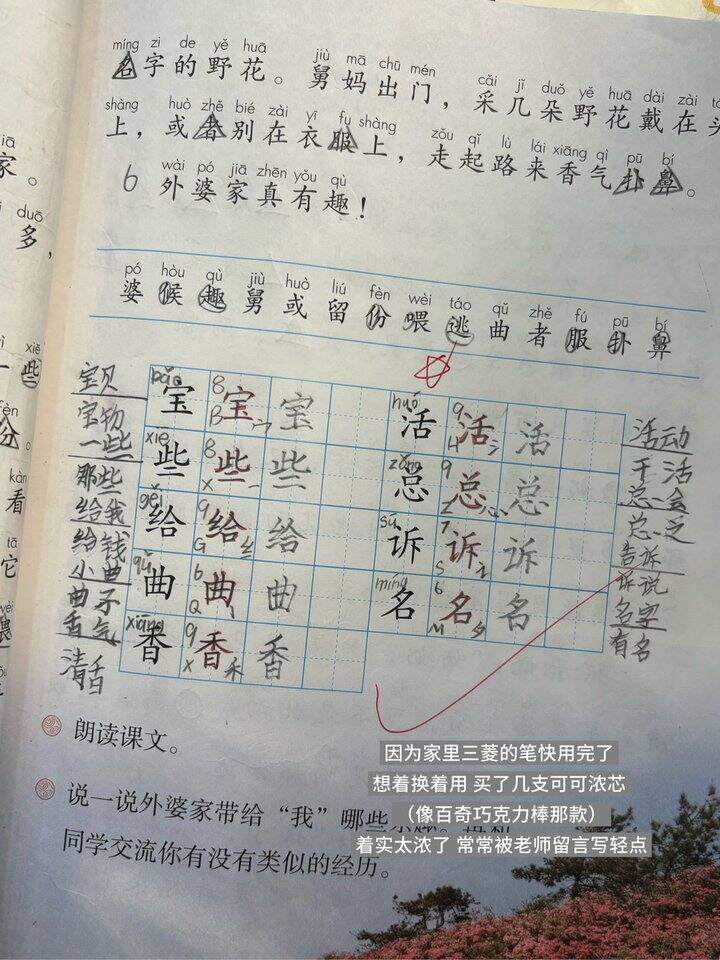 míng zi de yě huā jiù mā chū mén cǎi jǐ duǒ yě huā dài zài
名字的野花。舅妈出门，采几朵野花戴在头
shàng huò zhě bié zài yī fu shàng zǒu qǐ lù lái xiāng qì pū bí
上，或者别在衣服上，走起路来香气扑鼻。
wài pó jiā zhēn yǒu qù
6 外婆家真有趣！
pó hòu qù jiù huò liú fèn wèi táo qǔ zhě fú pū bí
婆候趣舅或留份喂逃曲者服扑鼻
宝贝
宝物
一些
那些
给我
给钱
小曲
曲子
香气
清香
bǎo 宝 8 B 宝 宀 宝
xiē 些 8 X 些 一 些
gěi 给 9 G 给 纟 给
qǔ 曲 6 Q 曲 丨 曲
xiāng 香 9 X 香 禾 香
huó 活 9 H 活 氵 活
zǒng 总 9 Z 总 心 总
sù 诉 7 S 诉 讠 诉
míng 名 6 M 名 夕 名
活动
干活
总会
总之
告诉
诉说
名字
有名
朗读课文。
说一说外婆家带给“我”哪些
同学交流你有没有类似的经历。
家。
多，
xiē
一些
fèn
份。
kàn
看
tā
它
wèi
喂
因为家里三菱的笔快用完了
想着换着用 买了几支可可浓芯
（像百奇巧克力棒那款）
着实太浓了 常常被老师留言写轻点